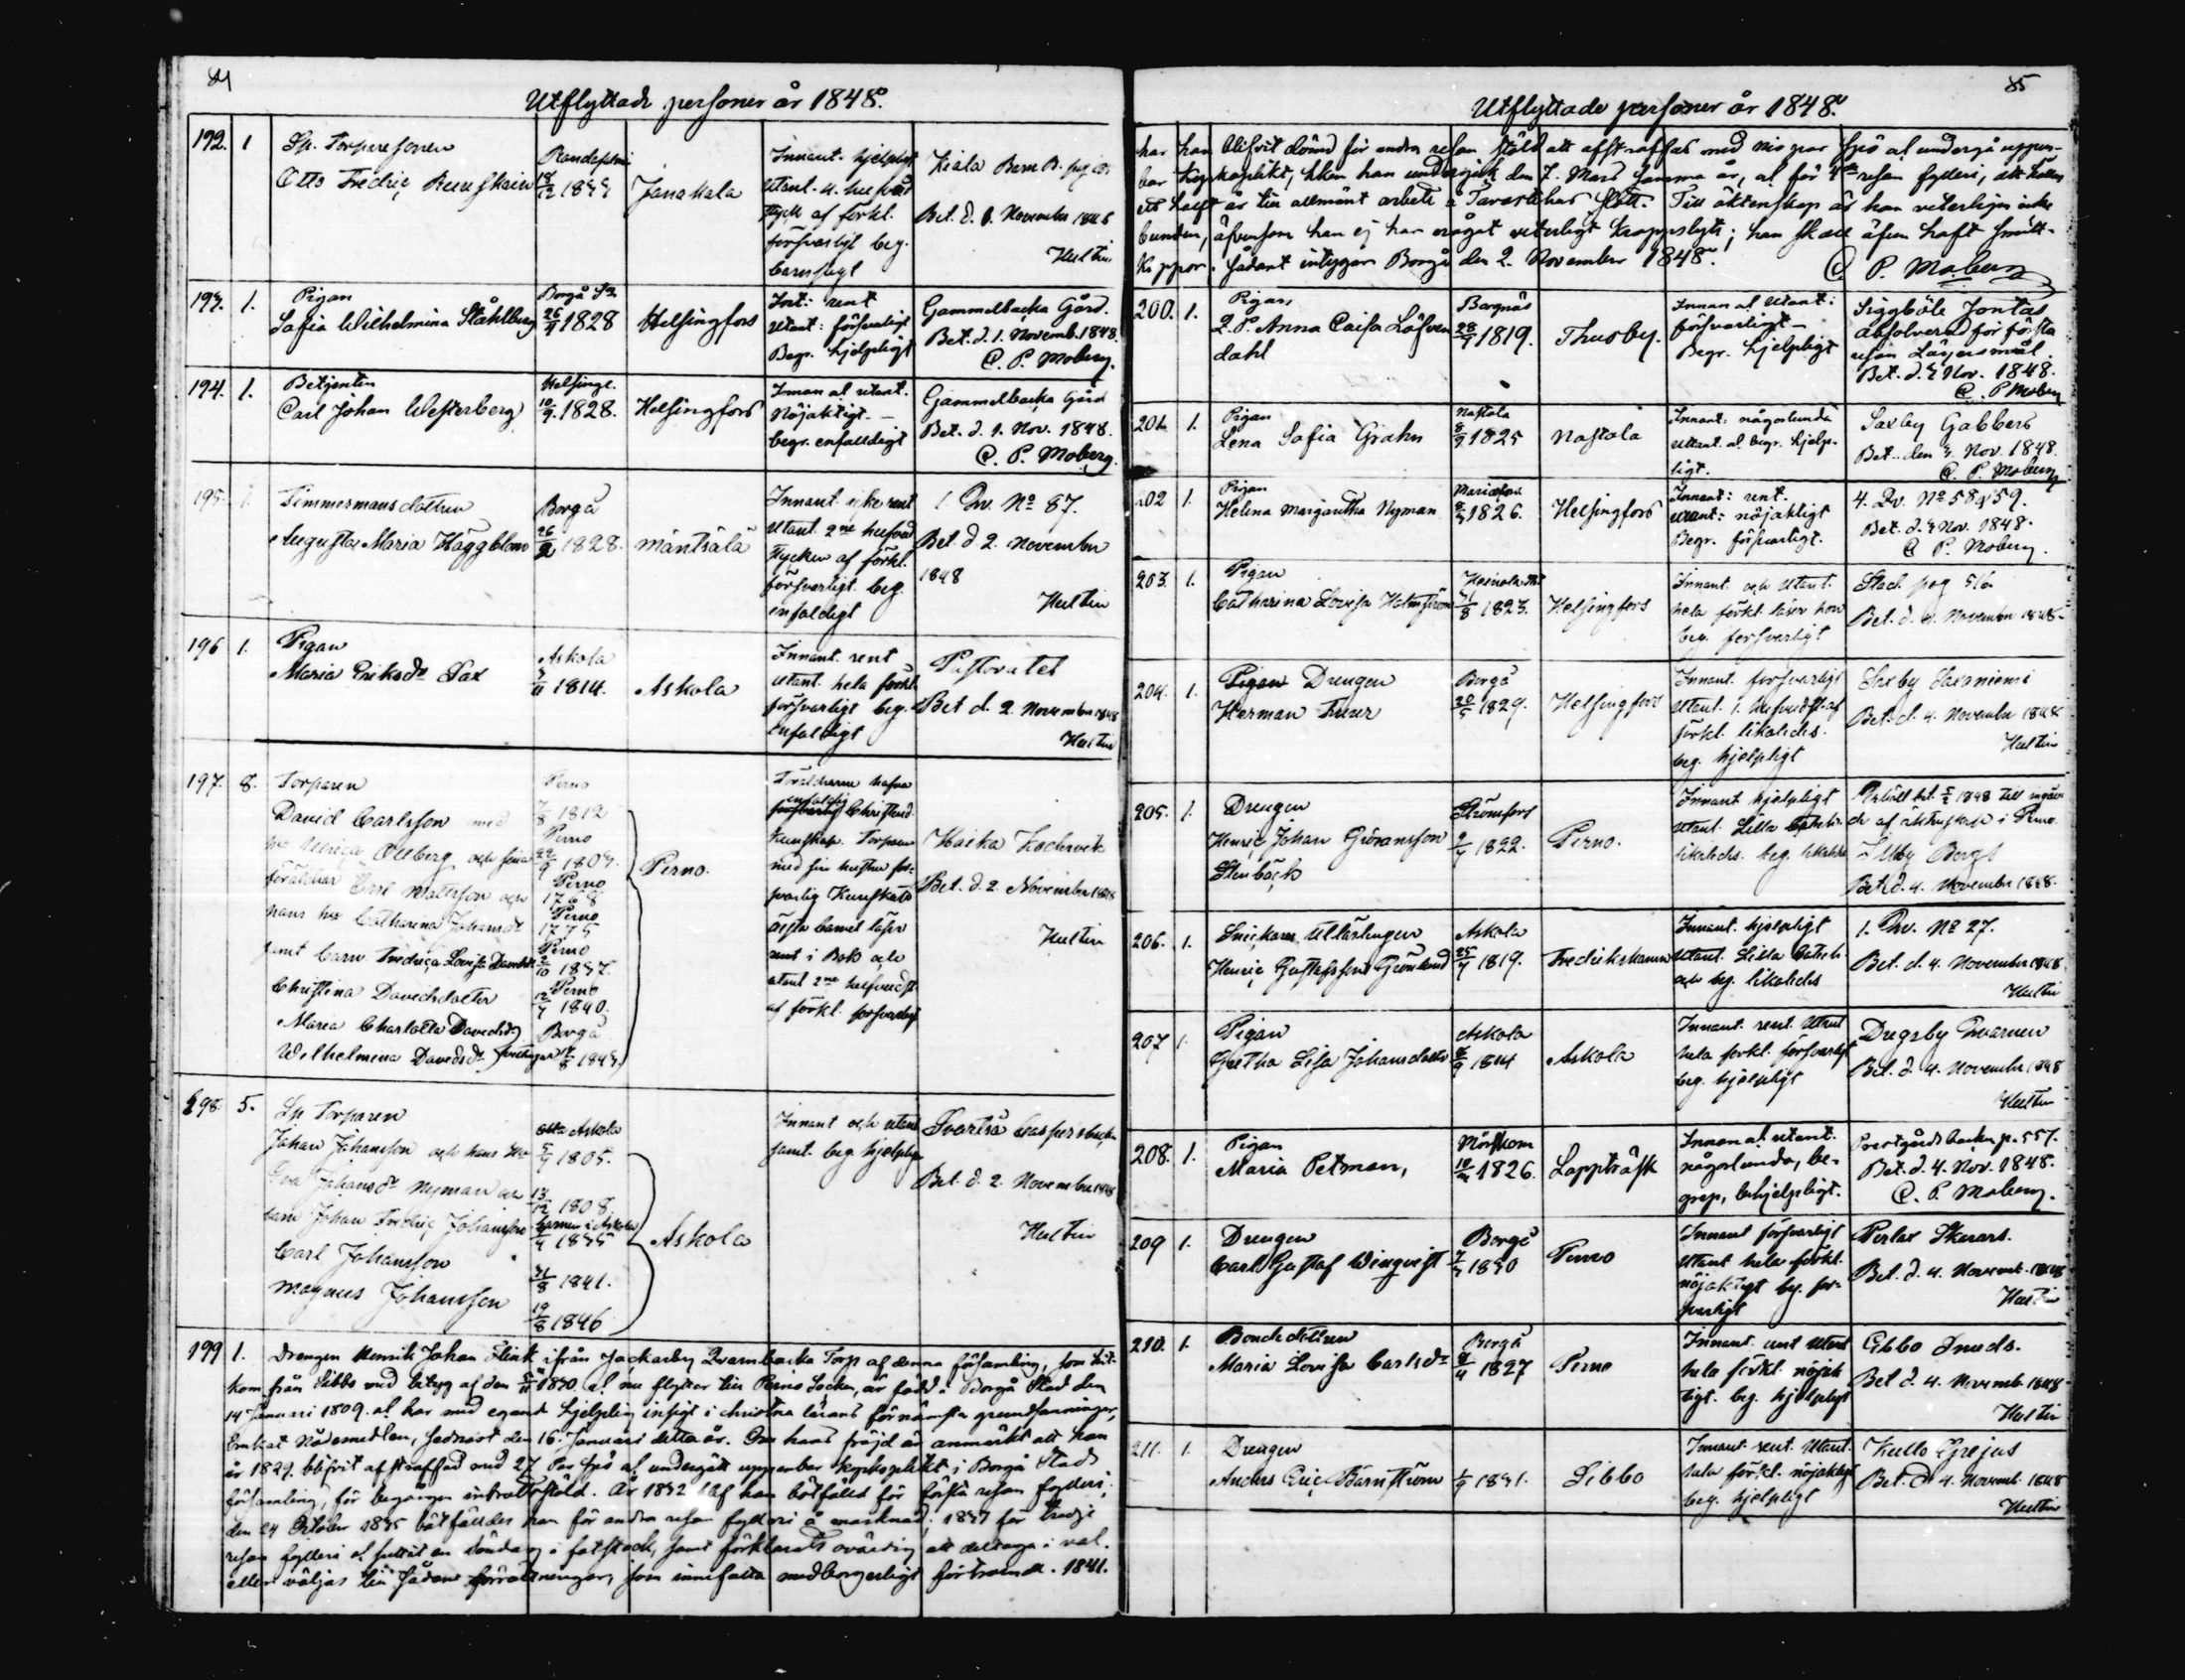 84
Utflyttade personer år 1848.
192. 1 Sp. Torparesonen
Otto Fredric
18/12
Janakala
Innant. hjelpligt
utant. 4. hufvud
stycke af förkl.
försvarligt beg.
barnsligt
Kiala
Bet. d. 1. November 1848
Hultin
193. 1. Pigan
Sofia Wilhelmina Ståhlberg
Borgå
26/11 1828
Helsingfors
Inn: rent
Utant: försvarligt
Begr. hjelpligt
Gammelbacka Gård.
Bet. d. 1. Novemb. 1848.
C. P. Moberg.
194. 1. Betjenten
Carl Johan Westerberg
Helsinge.
10/9 1828.
Helsingfors
Innan al utant.
Nöjaktigt.
begr. enfaldigt
Gammelbacka Gård
Bet. d. 1. Nov. 1848.
C. P. Moberg.
195. 1. Timmermansdottren
Augusta Maria Häggblom
Borgå
26/2 1828.
Mäntsälä
Innant. icke rent
Utant. 2ne hufvud
stycken af förkl.
försvarligt. beg.
enfaldigt
1 Qv. No 87.
Bet. d 2. November
1848
Hultin
196 1. Pigan
Maria Eriksdr Sax
Askola
1814.
Askola
Innant. rent
utant. hela förkl.
försvarligt beg.
enfaldigt
Pastoratet
Bet d. 2. November 1848
Hultin
197. 8. Torparen
David Carlsson med
hu Ulrica Öllberg och sina
föräldrar Carl Mattsson och
hans hu Catharina Johansdr
samt barn Fredrica Lovisa
Christina Davidsdotter
Maria Charlotta Davidsdr
Wilhelmina Davidsdr
Perno
7/8 1812
Perno
1809.
Perno
1768
Perno
1775
Perno
1837.
Perno
12/7 1840.
Borgå
1843.
Perno.
Föräldrarne hafva
enfaldig Christend.
Kunskap. Torparen
med sin hustru för-
svarlig Kunskap
äldsta barnet läser
rent i Bok och
utant 2ne hufvudst
af förkl. försvarligt
Haika
Bet. d. 2. November 1848
Hultin
198. 5. Sp Torparen
Johan Johansson och hans hu
Eva Johansdr Nyman och
barn Johan Fredric Johansson
Carl Johansson
Magnus Johansson
Askola
1805.
13/12 1808.
1835
31/8 1841.
19/8 1846
Askola
Innant och utant
samt beg hjelpligt
Svartså Caspersbacka
Bet. d. 2. November 1848
Hultin
199 1. Drengen Henrik Johan Flink ifrån Jackarby Qvarnbacka Torp af denna församling, som hit-
kom från Sibbo med betyg af den 1830 al nu flyttar till Perno Socken, är född i Borgå Stad den
14 Januari 1809. al har med egand hjelplig insigt i christna lärans förnämsta grundsanningar,
brukat Nådemedlen, sednast den 16. Januari detta år. Om hans fräjd är anmärkt att han
år 1829. blifvit afstraffad med 27 Par spö al undergått uppenbar kyrkoplikt i Borgå Stads
församling, för begången inbrottsstöld. År 1832 blef han bötfälld för första resan fylleri;
den 24 October 1835 bötfälldes han för andra resan fylleri å marknad; 1837 för tredje
resan fylleri al suttit en söndag i fotstock, samt förklarats ovärdig att deltaga i val.
eller väljas till sådane förrättningar, som innefatta medborgerligt förtroende. 1841.
85
Utflyttade personer år 1848.
har han blifvit dömd för andra resan stöld att afstraffas med nio par spö al undergå uppen-
bar kyrkoplikt, hken han undergick den 7. Mars samma år, al för 4de resan fylleri, att hållas
ett halft år till allmänt arbete å Tavastehus slott. Till äktenskap är han veterligen icke
bunden, äfvensom han ej har något veterligt kroppslyte; han skall äfven haft smitt-
koppor. Sådant intygar Borgå den 2. November 1848.
C. P. Moberg
200. 1. Pigan,
Q. P. Anna Caisa Löfven
dahl
Borgnäs
28/9 1819.
Thusby.
Innan al utant:
försvarligt
Begr. hjelpligt
Siggböle Jontas
absolverad för första
resan Lägersmål.
Bet. d. 3 Nov. 1848.
C. P. Moberg
201. 1. Pigan
Lena Sofia Grahn
Nastola
8/9 1825
Nastola
Innant: någorlunda
utant. al begr. hjelp-
ligt.
Saxby Gabbers
Bet. den 3. Nov. 1848.
C. P. Moberg
202 1. Pigan
Helena Margaretha Nyman
1826.
Helsingfors
Innant: rent.
utant: nöjaktigt
Begr. försvarligt.
4. Qv. No 58 & 59.
Bet. d. 3 Nov. 1848.
C. P. Moberg.
203. 1. Pigan
Catharina Lovisa Holmström
1823.
Helsingfors
Innant. och Utant.
hela förkl. läser hon
beg. försvarligt
Stad. pag 51
Bet. d. 4. November 1848.
204. 1. Drengen
Herman
Borgå
1829.
Helsingfors
Innant. försvarligt
utant. 1. hufvudst. af
förkl. likaledes.
beg. hjelpligt
Saxby Saxaniemi
Bet. d. 4. November 1848
Hultin
205. 1. Drengen
Henric Johan Göransson
Stenbäck
Strömfors
9/7 1822.
Perno.
Innant hjelpligt
Utant. Lilla Cateches.
likaledes. beg. likaledes
1848 till ingåen-
de af äktenskap i Perno
Bet. d. 4. November 1848.
206. 1. Snickare Utlärlingen
Henric Gustafsson Grönlund
Askola
25/7 1819.
Fredrikshamn
Innant. hjelpligt
Utant. Lilla Catech.
och beg. likaledes
1. Qv. No 27.
Bet. d. 4. November 1848
Hultin
207 1. Pigan
Gretha Lisa Johansdotter
Askola
1814
Askola
Innant. rent. Utant
hela förkl. försvarligt
beg. hjelpligt
Drägsby Qvarnen
Bet. d. 4. November 1848
Hultin
208. 1. Pigan
Maria Petman,
Mörskom
1826.
Lappträsk
Innan al utant.
någorlunda, be-
grep, behjelpligt.
Prestgårds backen p. 557.
Bet. d. 4. Nov. 1848.
C. P. Moberg.
209 1. Drengen
Carl Gustaf Winqvist
Borgå
1830
Perno
Innant försvarligt
Utant hela förkl.
nöjaktigt beg. för-
svarligt
Perlax Skarars.
Bet. d. 4. Novemb. 1848
Hultin
210. 1. Bondedottren
Maria Lovisa Carlsdr
Borgå
1827
Perno
Innant. rent Utant
hela förkl. nöjak
tigt. beg. hjelpligt
Ebbo Smeds.
Bet d. 4. Novemb. 1848
Hultin
211. 1. Drengen
Anders Eric Bärnström
1/9 1831.
Sibbo
Innant. rent. Utant.
hela förkl. nöjaktigt
beg. hjelpligt
Kullo Grejus
Bet. d 4. Novemb. 1848
Hultin